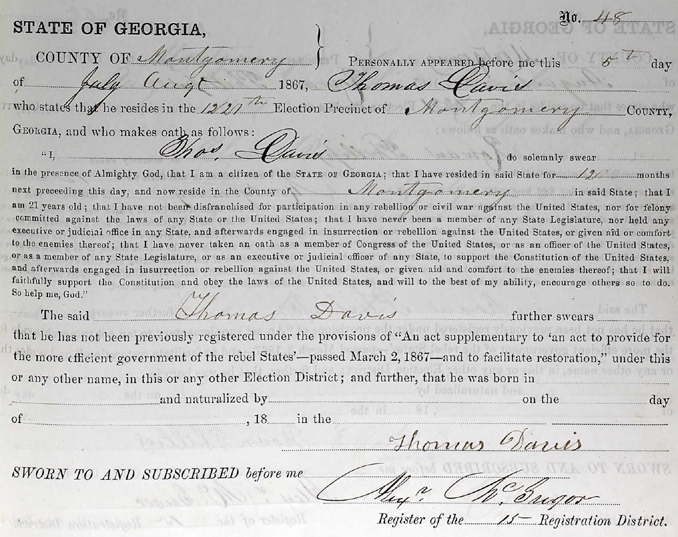 No. 48
STATE OF GEORGIA,
COUNTY OF Montgomery } PERSONALLY APPEARED before me this 5th day
of July Augt 1867, Thomas Davis
who states that he resides in the 1221th Election Precinct of Montgomery COUNTY,
GEORGIA, and who makes oath as follows:
"I, Thos. Davis do solemnly swear
in the presence of Almighty God, that I am a citizen of the STATE OF GEORGIA; that I have resided in said State for 12 months
next preceeding this day, and now reside in the County of Montgomery in said State; that I
am 21 years old; that I have not been disfranchised for participation in any rebellion or civil war against the United States, nor for felony
committed against the laws of any State or the United States; that I have never been a member of any State Legislature, nor held any
executive or judicial office in any State, and afterwards engaged in insurrection or rebellion against the United States, or given aid or comfort
to the enemies thereof; that I have never taken an oath as a member of Congress of the United States, or as an officer of the United States,
or as a member of any State Legislature, or as an executive or judicial officer of any State, to support the Constitution of the United States,
and afterwards engaged in insurrection or rebellion against the United States, or given aid and comfort to the enemies thereof; that I will
faithfully support the Constitution and obey the laws of the United States, and will to the best of my ability, encourage others so to do.
So help me, God."
The said Thomas Davis further swears
that he has not been previously registered under the provisions of "An act supplementary to 'an act to provide for
the more efficient government of the rebel States'—passed March 2, 1867—and to facilitate restoration," under this
or any other name, in this or any other Election District; and further, that he was born in
and naturalized by on the day
of , 18 in the
Thomas Davis
SWORN TO AND SUBSCRIBED before me
Alexr. McGregor
Register of the 15 Registration District.